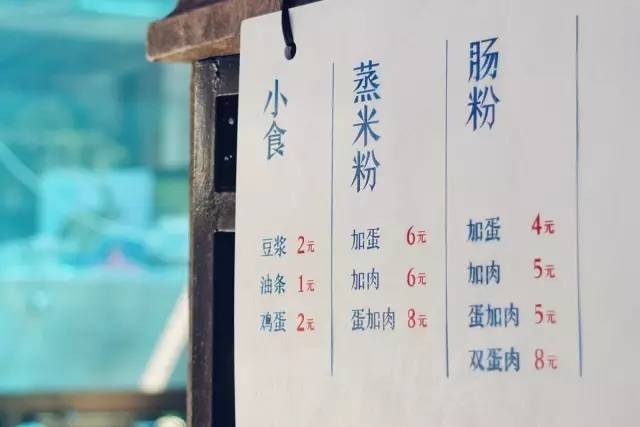 小食
豆浆 2元
油条 1元
鸡蛋 2元
蒸米粉
加蛋 6元
加肉 6元
蛋加肉 8元
肠粉
加蛋 4元
加肉 5元
蛋加肉 5元
双蛋肉 8元